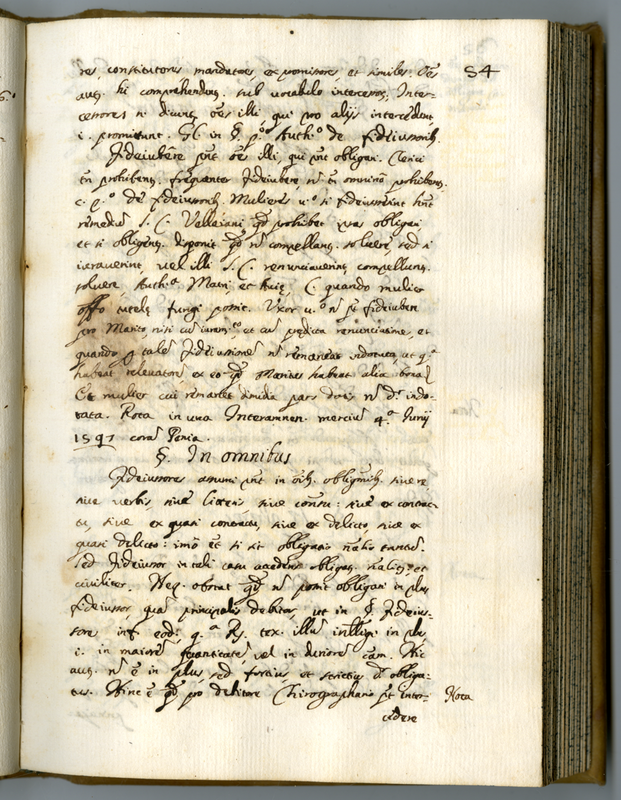 54
res constitutores mandatores, expromissores, et similes. Oēs
aut. hi comprehendunt. sub vocabulo intercessor. Inter-
cessores n. dicunt. oēs illi qui pro alijs intercedunt
i. promittunt. Gl. in §. p.º Auth.º de fideiussorib.
Fideiubere pñt oēs illi, qui pñt obligari. Clerici
tñ prohibent. frequenter fideiubere nō tñ omnino prohibent.
c. p.º de fideiussorib. Mulieres v.º si fideiusserint hñt
remedium S. C. Velleiani qd prohibet ipsas obligari
et si obligent. disponit qd nō compellant. solvere, sed si
iuraverint vel illi S. C. renunciaverint compellunt.
solvere Auth.ª Matri et Aviæ, C. quando mulier
offo tutelæ fungi potest. Uxor v.º nō pt fideiubere
pro Marito nisi cum iuram.to, et cum prædicta renunciatione, et
quando p talem fideiussionem nō remaneat indotata, ut q.ª
habeat relevatorem ex eo qd Maritus habeat alia bona
Et mulier cui remanet dimidia pars dotis nō dr indo-
tata. Rota in una Interamnen. mercurij 4.ª Junij
1597 coram Penia.
§. In omnibus
Fideiussores assumi pñt in oīb. obligñib. sive re
sive verbis, sive litteris sive consensu: sive ex contrac-
tu, sive ex quasi contractu, sive ex delicto sive ex
quasi delicto: imo et si sit obligatio nālis tantum.
sed fideiussor in tali casu accedens obligat. nālit. et
civiliter. Neq. obstat qd nō possit obligari in plus
fideiussor, quam principalis debitor, ut in §. fideius-
sores inf. eod. q.ª R. tex. illum intelligi in plus
i. in maiorem quantitatem, vel in duriorem cām. Hic
aut. nō ē in plus, sed fortius, et strictius dr obliga-
tus. Hinc ē qd pro debitore Chirographario pt inter- Nota
cedere